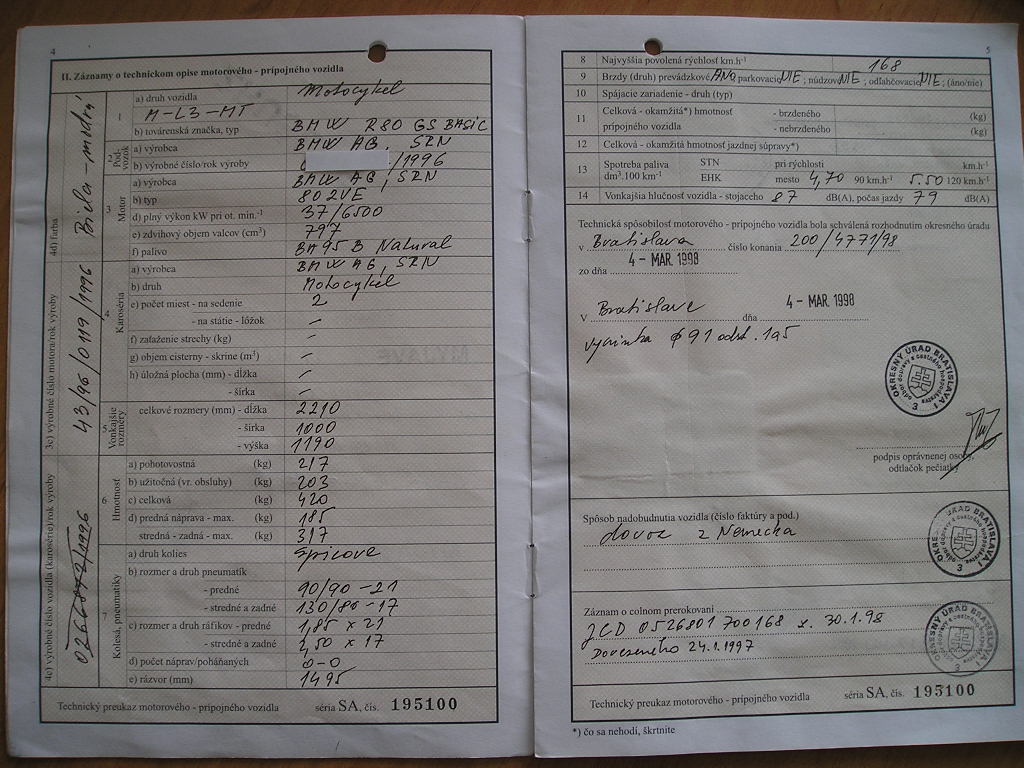 4
II. Záznamy o technickom opise motorového - prípojného vozidla
4d) farba Biela - modrá
3c) výrobné číslo motora/rok výroby 43/96/0119/1996
4c) výrobné číslo vozidla (karosérie)/rok výroby
1 a) druh vozidla Motocykel
M-L3-MT
b) továrenská značka, typ BMW R80 GS BASIC
2 Podvozok a) výrobca BMW AG, SRN
b) výrobné číslo/rok výroby /1996
3 Motor a) výrobca BMW AG, SRN
b) typ 802VE
d) plný výkon kW pri ot. min.-¹ 37/6500
e) zdvihový objem valcov (cm³) 797
f) palivo BA 95 B Natural
4 Karoséria a) výrobca BMW AG, SRN
b) druh Motocykel
e) počet miest - na sedenie 2
- na státie - lôžok –
f) zaťaženie strechy (kg) –
g) objem cisterny - skrine (m³) –
h) úložná plocha (mm) - dĺžka –
- šírka –
5 Vonkajšie rozmery celkové rozmery (mm) - dĺžka 2210
- šírka 1000
- výška 1190
6 Hmotnosť a) pohotovostná (kg) 217
b) užitočná (vr. obsluhy) (kg) 203
c) celková (kg) 420
d) predná náprava - max. (kg) 185
stredná - zadná - max. (kg) 317
7 Kolesá, pneumatiky a) druh kolies špicové
b) rozmer a druh pneumatík
- predné 90/90 -21
- stredné a zadné 130/80 -17
c) rozmer a druh ráfikov - predné 1,85 x 21
- stredné a zadné 2,50 x 17
d) počet náprav/poháňaných 0-0
e) rázvor (mm) 1495
Technický preukaz motorového - prípojného vozidla séria SA, čís. 195100
5
8 Najvyššia povolená rýchlosť km.h-¹ 168
9 Brzdy (druh) prevádzkové ÁNO, parkovacie NIE; núdzové NIE, odľahčovacie NIE; (áno/nie)
10 Spájacie zariadenie - druh (typ)
11 Celková - okamžitá*) hmotnosť - brzdeného (kg)
prípojného vozidla - nebrzdeného (kg)
12 Celková - okamžitá hmotnosť jazdnej súpravy*)
13 Spotreba paliva STN pri rýchlosti km.h-¹
dm³.100 km-¹ EHK mesto 4,70 90 km.h-¹ 5.50 120 km.h-¹
14 Vonkajšia hlučnosť vozidla - stojaceho 87 dB(A), počas jazdy 79 dB(A)
Technická spôsobilosť motorového - prípojného vozidla bola schválená rozhodnutím okresného úradu
v Bratislava číslo konania 200/4771/98
zo dňa 4 - MAR. 1998
V Bratislave dňa 4 - MAR. 1998
výnimka § 91 odst. 1a5
OKRESNÝ ÚRAD BRATISLAVA I
odbor dopravy a cestného hospodárstva
3
podpis oprávnenej osoby,
odtlačok pečiatky
Spôsob nadobudnutia vozidla (číslo faktúry a pod.)
dovoz z Nemecka
OKRESNÝ ÚRAD BRATISLAVA I
odbor dopravy a cestného hospodárstva
3
Záznam o colnom prerokovaní
JCD 0526801 700168 z. 30.1.98
Dovezeného 24.1.1997
OKRESNÝ ÚRAD BRATISLAVA I
3
Technický preukaz motorového - prípojného vozidla séria SA, čís. 195100
*) čo sa nehodí, škrtnite